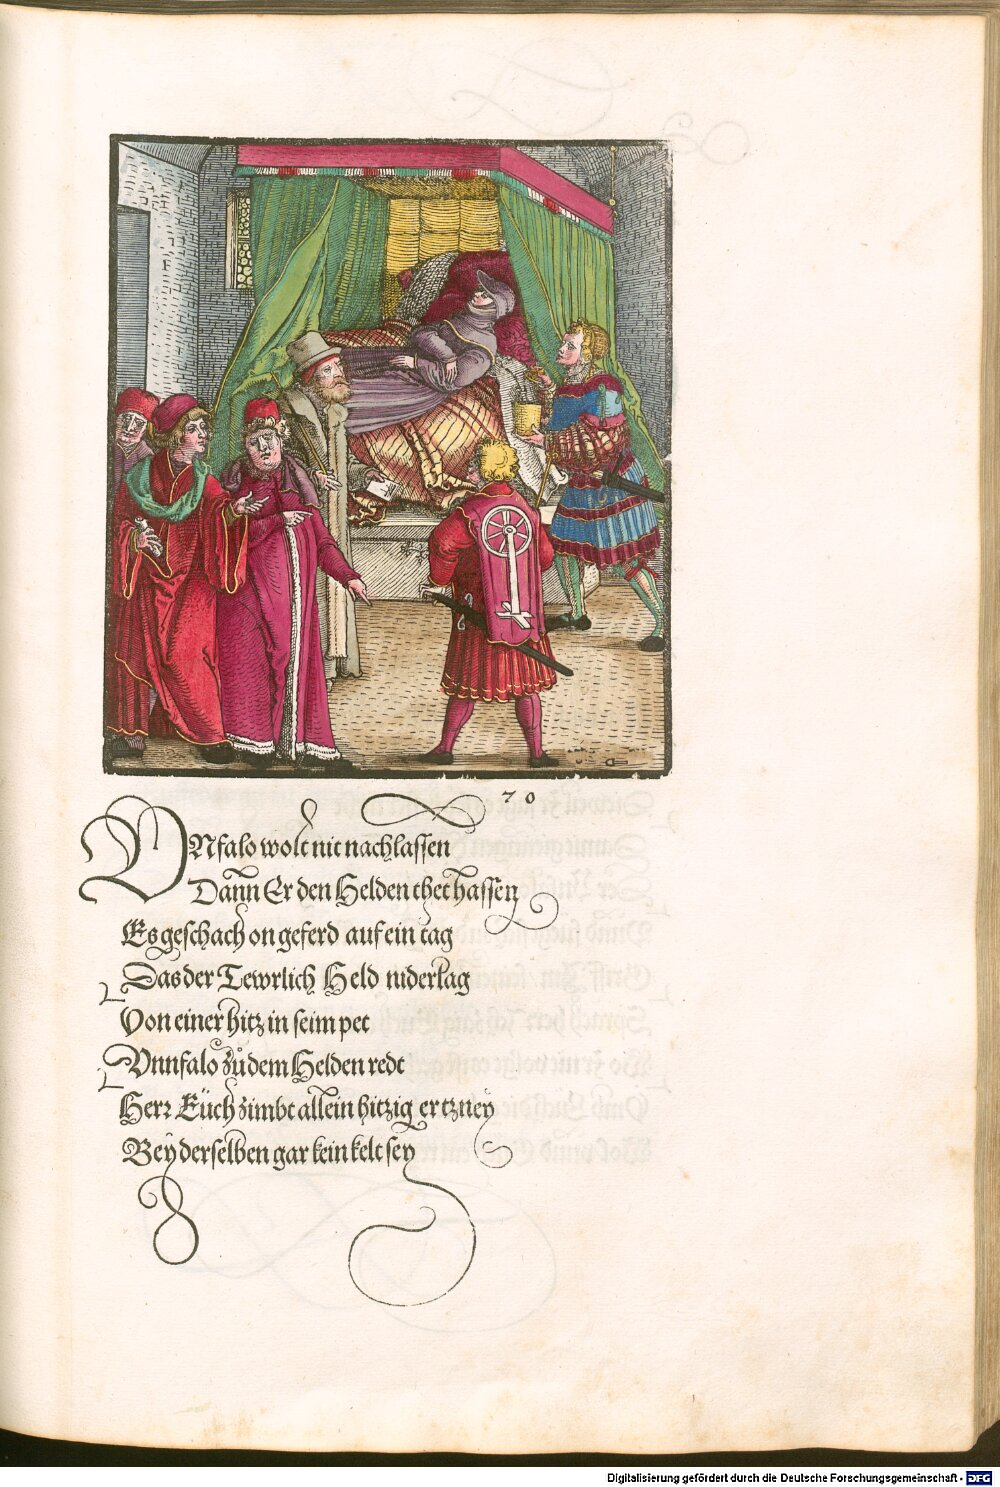 70
VNfalo wolt nit nachlassen
Dann Er den Helden thet hassen
Es geschach on geferd auf ein tag
Das der Tewrlich Held niderlag
Von einer hitz in seim pet
Vnnfalo zůdem Helden redt
Herr Eüch zimbt allein hitzig ertzney
Bey derselben gar kein kelt sey
Digitalisierung gefördert durch die Deutsche Forschungsgemeinschaft - DFG